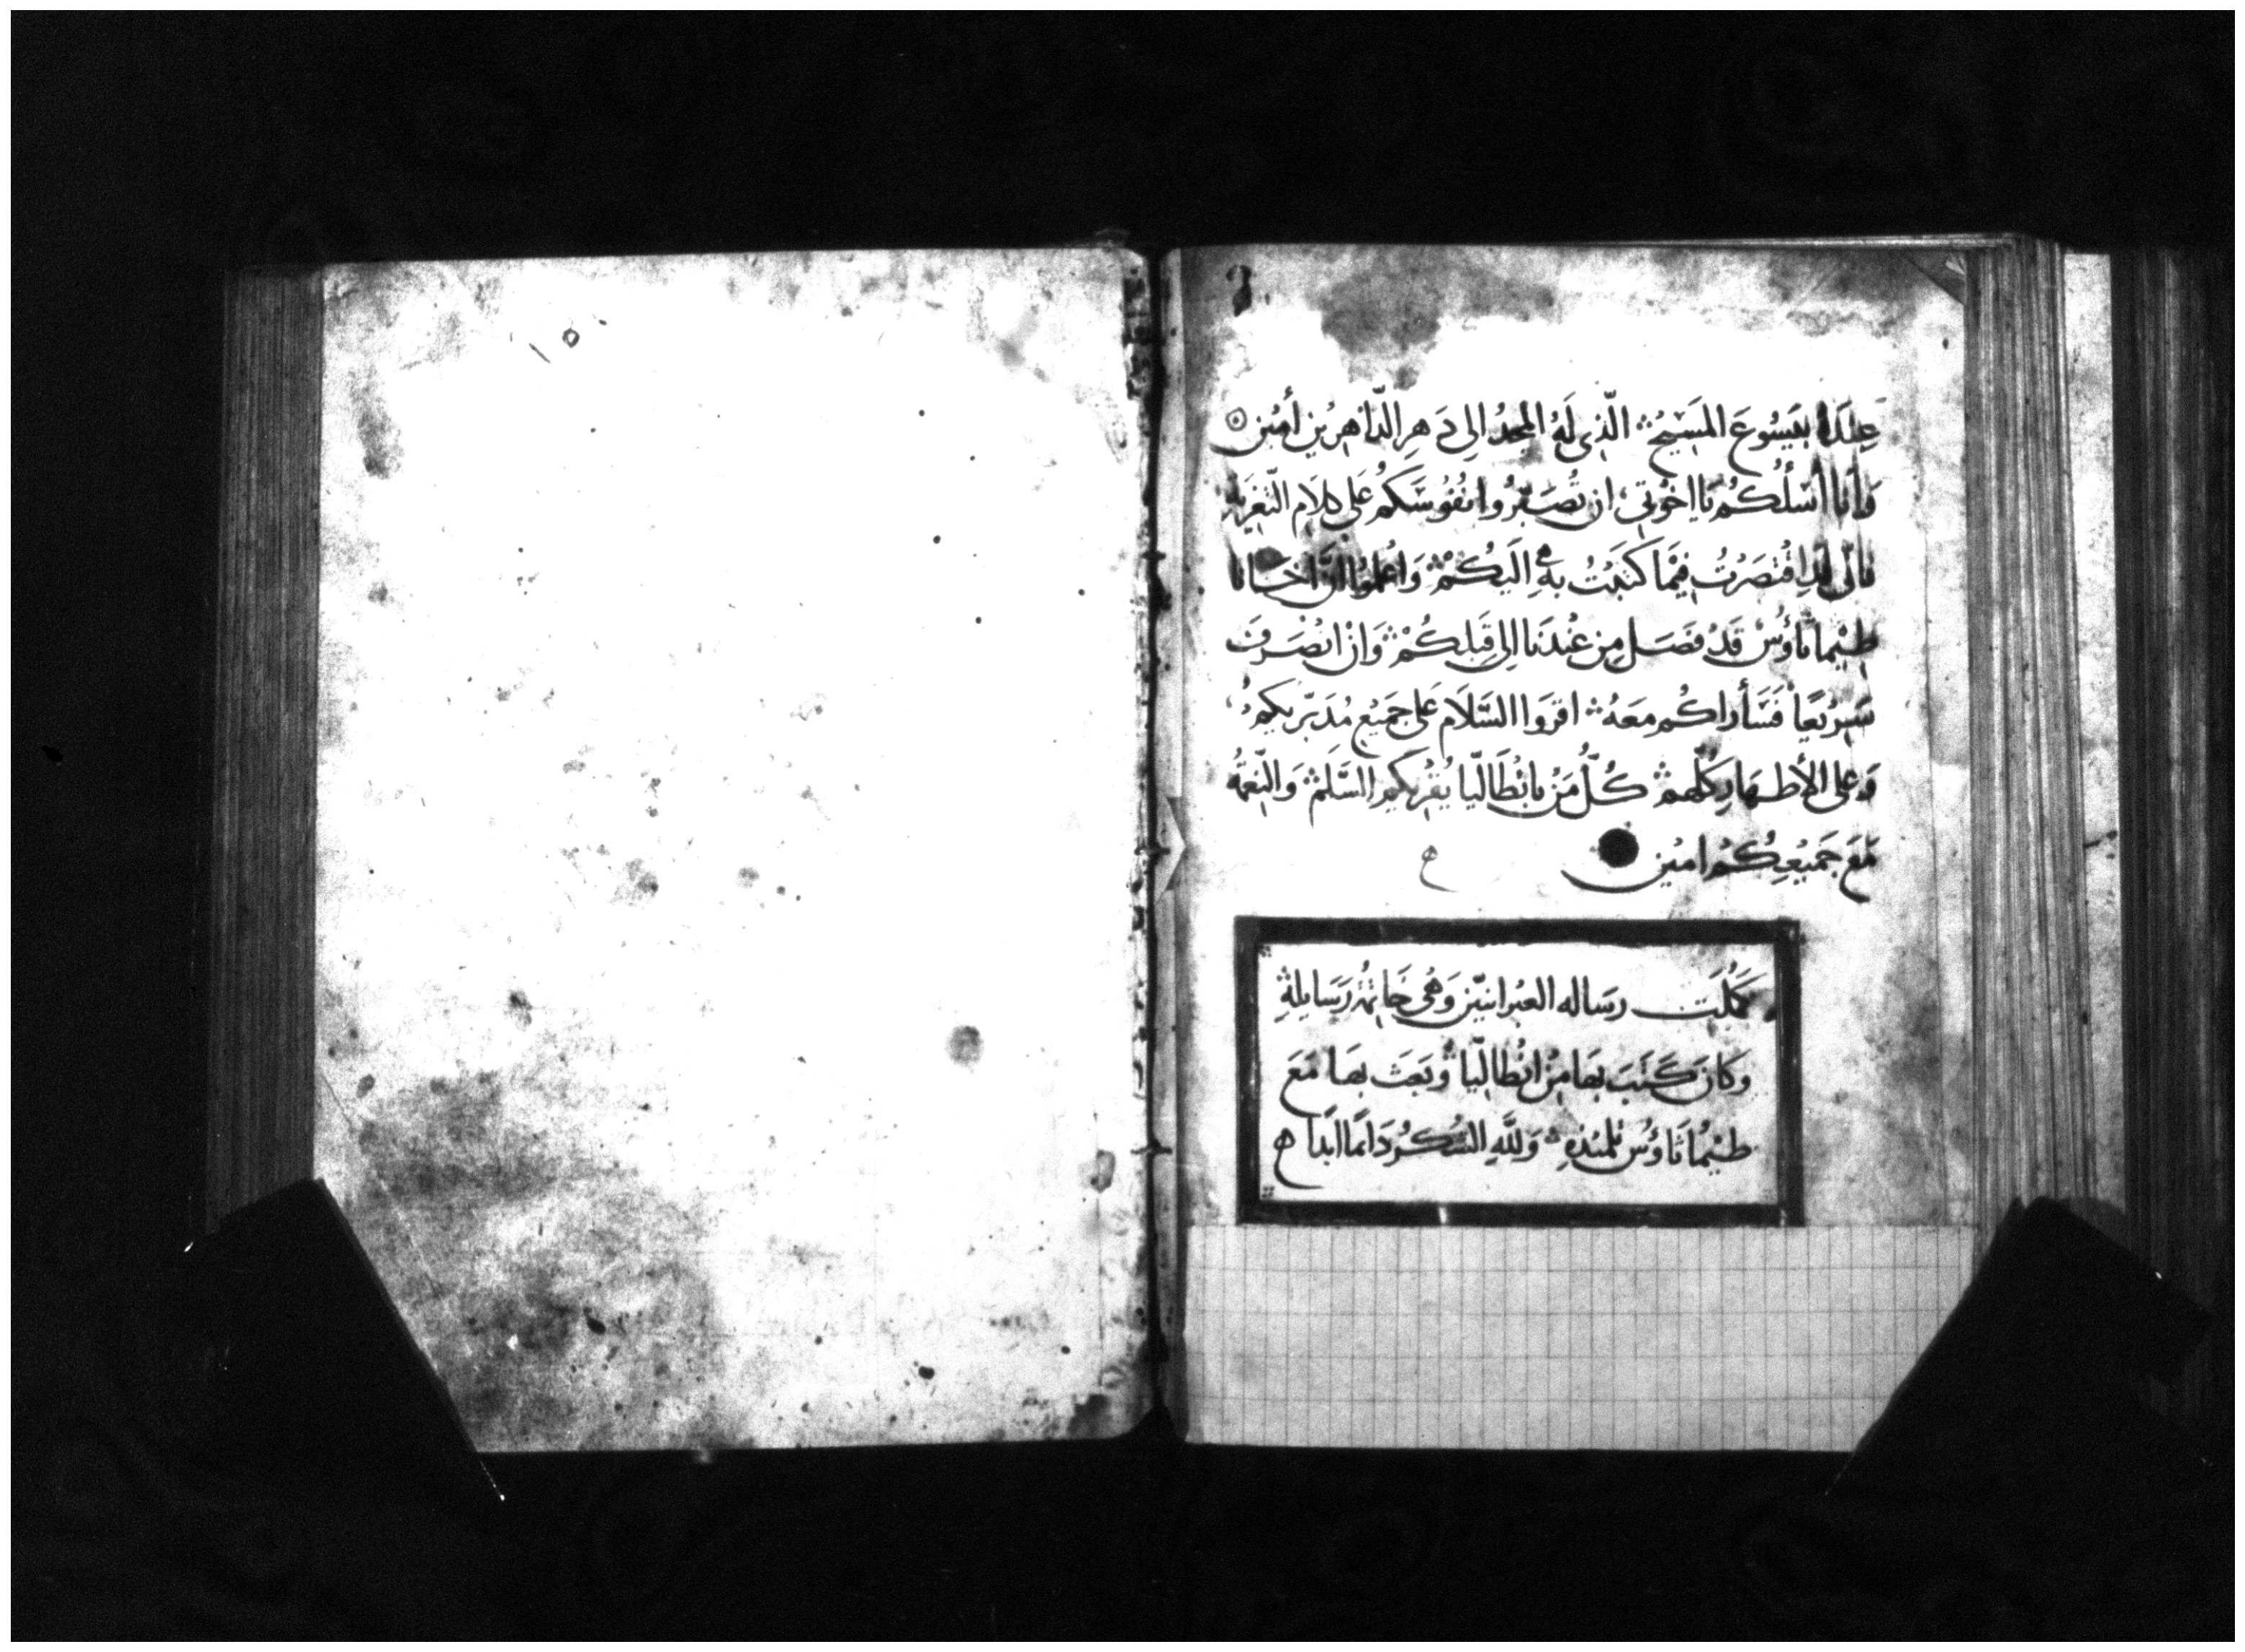 عِنْدَهُ بِيَسُوعَ المَسِيْح الَّذِى لَهُ المَجدُ الِى دَهِرِ الدَّاهِرِيْن أَمِيْن
وَأَنَا أَسْأَلُكُم يَا اخْوَتِى ان تُصَبِّرُوا نُفُوسَكُم عَلى كلَامِ التَّعْزِيَه
فانّى قَدِ اقْتَصَرْتُ فِيْمَا كَتَبْتُ بهِ الَيْكُمْ وَاعْلَمُوا انَّ اخَانَا
طِيْمَاثاؤُسْ قَدْ فَصَل مِن عْنْدَنا الِى قِبَلِكُمْ وَانْ انْصَرَفَ
سَرِيْعًا فَسَأَراكُم مَعَهُ اقروا السَّلَام عَلى جَمِيْع مُدَبّريكُمْ
وَعلى الأَطْهَارِ كُلِّهم كُلُّ مَنْ بانْطَالّيا يُقْرِيكُم السَّلم وَالنّعْمَهُ
مَعَ جَمِيْعِكُمْ امِيْن
كَمُلَت رِسَاله العبْرانيّين وَهْى خَاتِمَةُ رَسَايِلةِ
وَكَانَ كَتَبَ بِهَا مِنْ انْطالّيا وَبَعَث بِهَا مَعَ
طيْمَاثَاؤُس تلميْذهِ وَللَّهِ الشُكرُ دَايمًا ابَدًا